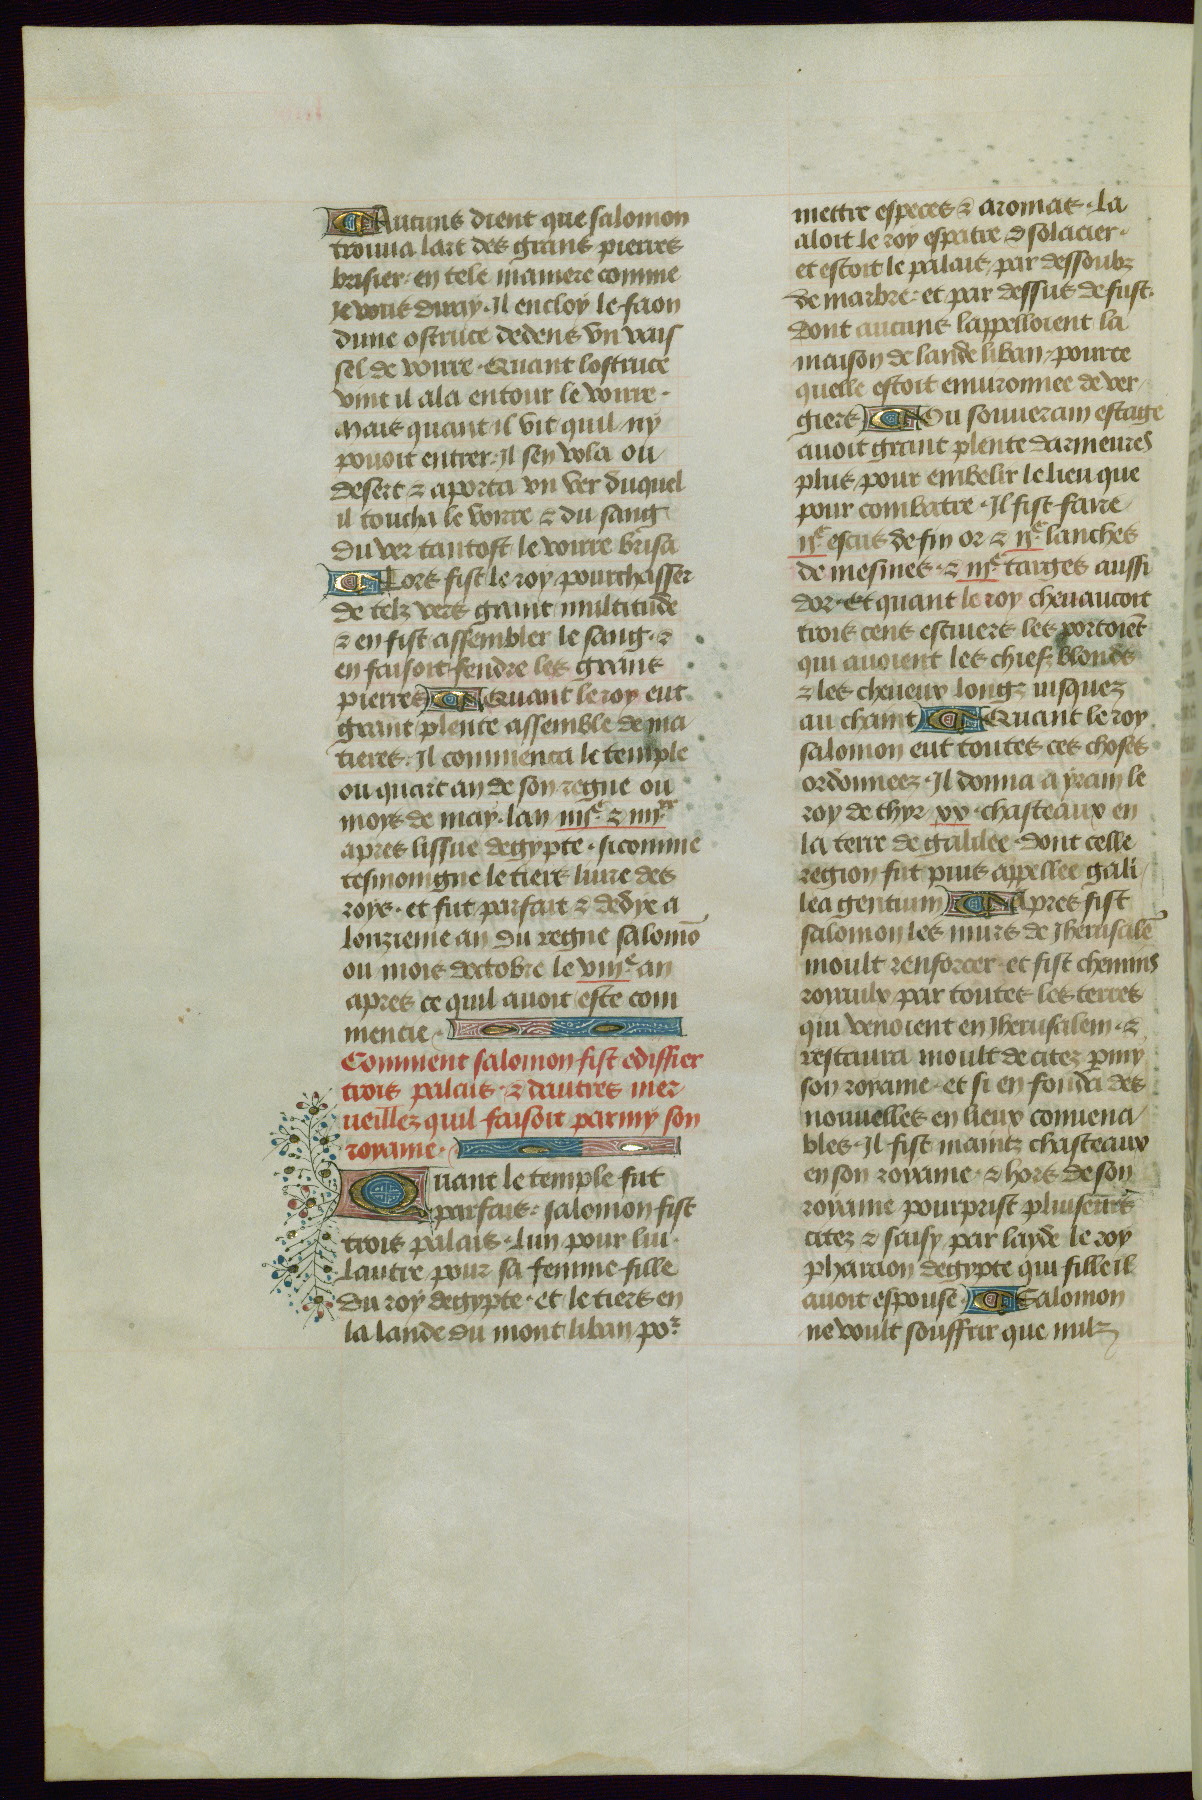 Aucuns dient que salomon
trouua lart des grans pierres
brisier· en tele maniere comme
Je vous diray· Il encloy le faon
dune ostruce dedens vn vais
sel de voirre· Quant lostruce
vint il ala entour le voirre·
Mais quant il vit quil ny
pouoit entrer· Il sen vola ou
desert & aporta vn ver duquel
il toucha le voirre & du sang
du ver tantost le voirre brisa
Lors fist le roy pourchasser
de telz vers grant multitude
& en fist assembler le sang· &
en faisoit fendre les grans
pierres Quant le roy eut
grant plente assemble de ma
tieres· Il commenca le temple
ou quart an de son regne ou
moys de may· lan iiijᶜ & iiijˣˣ
apres lissue degypte· sicomme
tesmoingne le tiers liure des
roys· et fut parfait & dedye a
lonzieme an du regne salomō
ou mois doctobre le viijᵉ an
apres ce quil auoit este com
mencie·
Comment salomon fist edissier
trois palais & dautres mer
ueillez quil faisoit parmy son
royame·
Quant le temple fut
parfait· salomon fist
trois palais· lun pour lui·
Lautre pour sa femme fille
du roy degypte· et le tiers en
la lande du mont liban poᷣ
mettre especes & aromas· La
aloit le roy esbatre & solacier·
et estoit le palais par dessoubz
de marbre· et par dessus de fust·
dont aucuns lappelloient la
maison de lande liban· pource
quelle estoit enuironnee de ver
giers Ou souuerain estage
auoit grant plente darmeures
plus pour embelir le lieu que
pour combatre· Il fist faire
ijᶜ escus de fin or & ijᶜ lanches
de mesmes· & iijᶜ targes aussi
dor· Et quant le roy cheuaucoit
trois cens escuiers les portoiēt
qui auoient les chiefz blonds
& les cheueux longz iusquez
au chaint Quant le roy
salomon eut toutes ces choses
ordonneez· Il donna a yram le
roy de thyr xx· chasteaux en
la terre de galilee· dont celle
region fut puis appellee gali
lea gentium Apres fist
salomon les murs de Jherusalē
moult renforcer· et fist chemins
royaulx par toutes les terres
qui venoient en Jherusalem· &
restaura moult de citez ꝑmy
son royame· et si en fonda des
nouuelles en lieux conuena
bles· Il fist maintz chasteaux
en son royame· & hors de son
royame pourprist pluiseurs
citez & saisy par layde le roy
pharaon degypte qui fille il
auoit espouse· Salomon
ne voult souffrir que nulz